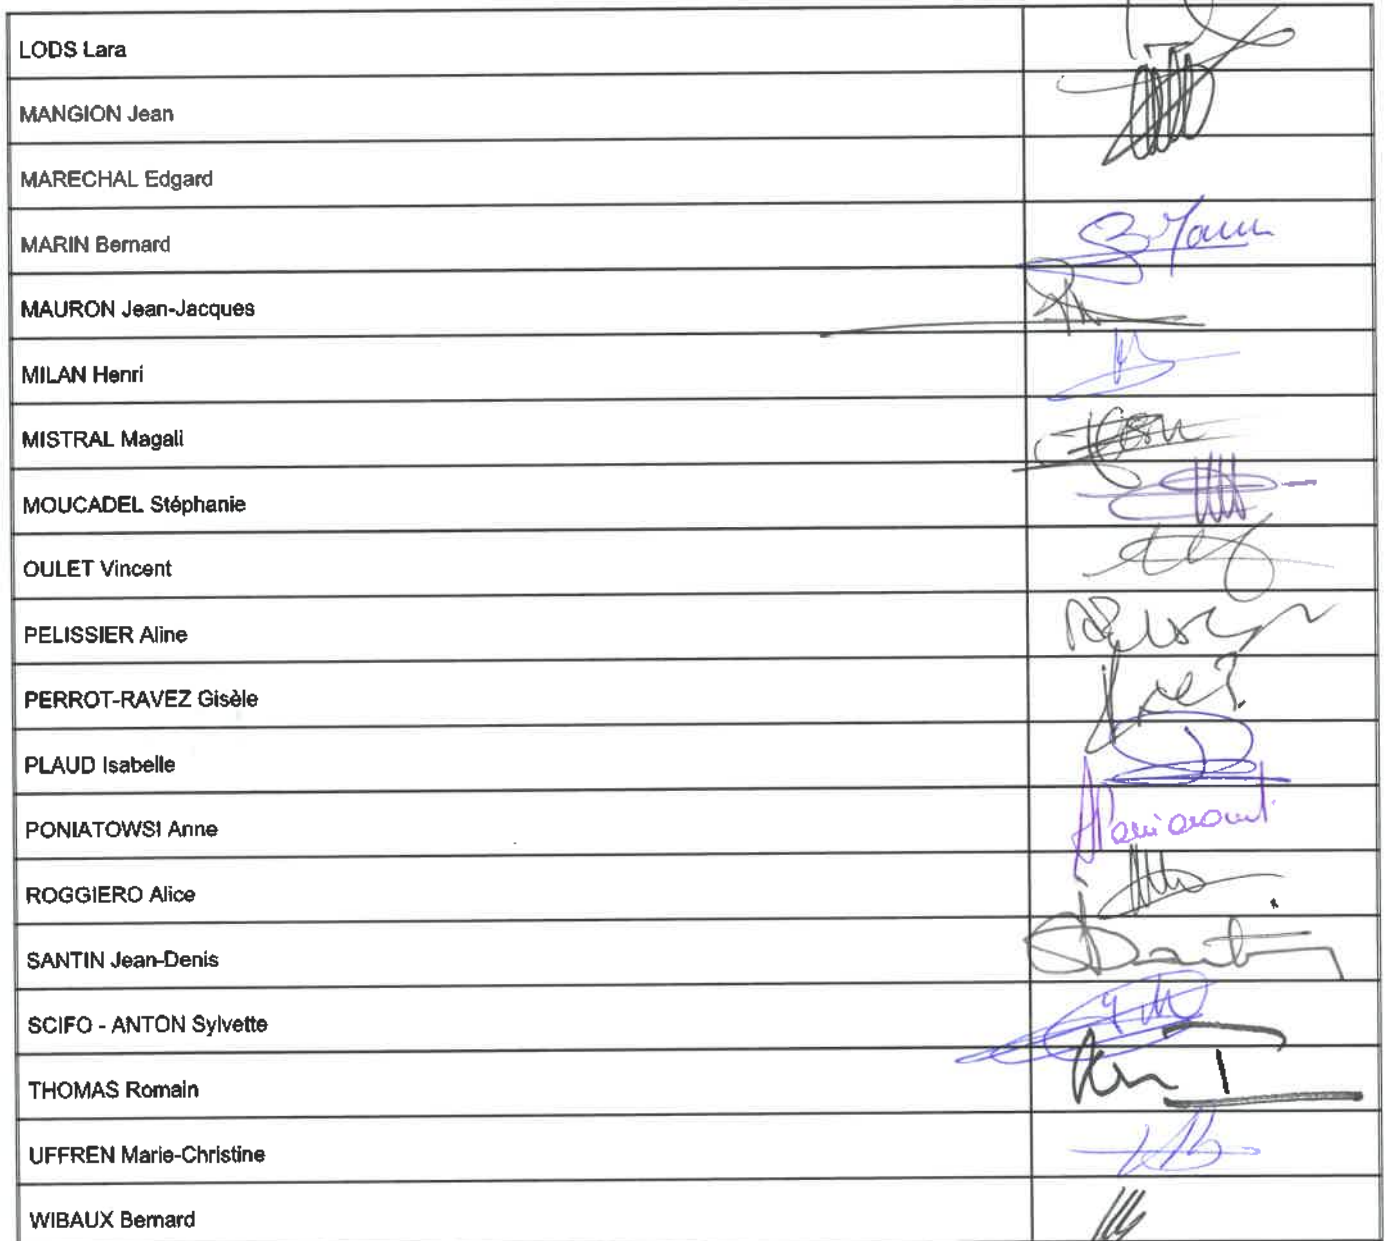 LODS Lara
MANGION Jean
MARECHAL Edgard
MARIN Bernard
MAURON Jean-Jacques
MILAN Henri
MISTRAL Magali
MOUCADEL Stéphanie
OULET Vincent
PELISSIER Aline
PERROT-RAVEZ Gisèle
PLAUD Isabelle
PONIATOWSI Anne
ROGGIERO Alice
SANTIN Jean-Denis
SCIFO - ANTON Sylvette
THOMAS Romain
UFFREN Marie-Christine
WIBAUX Bernard